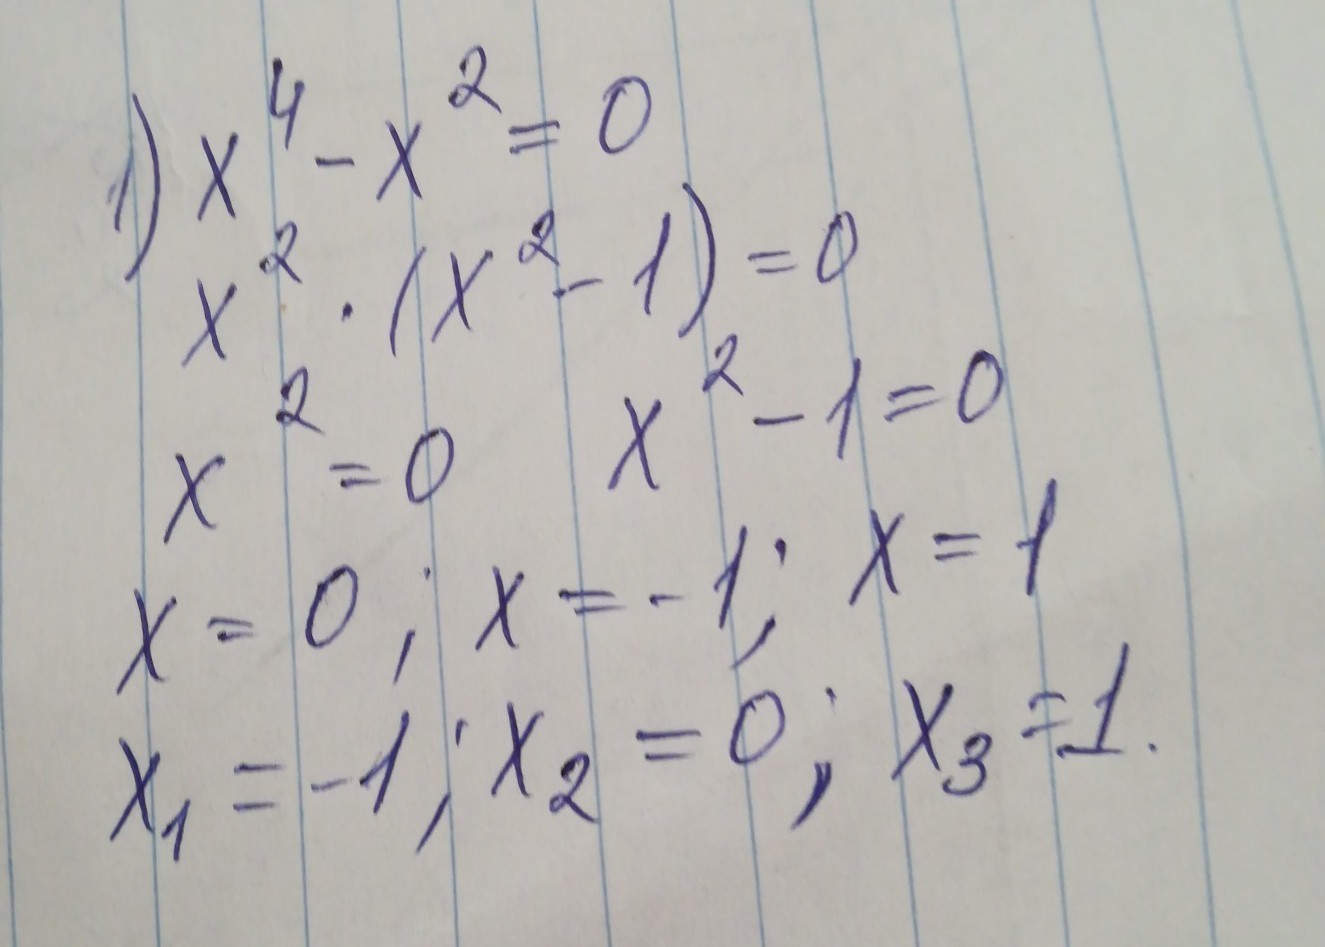 1) x⁴ - x² = 0
x² · (x² - 1) = 0
x² = 0 x² - 1 = 0
x = 0; x = -1; x = 1
x₁ = -1; x₂ = 0; x₃ = 1.